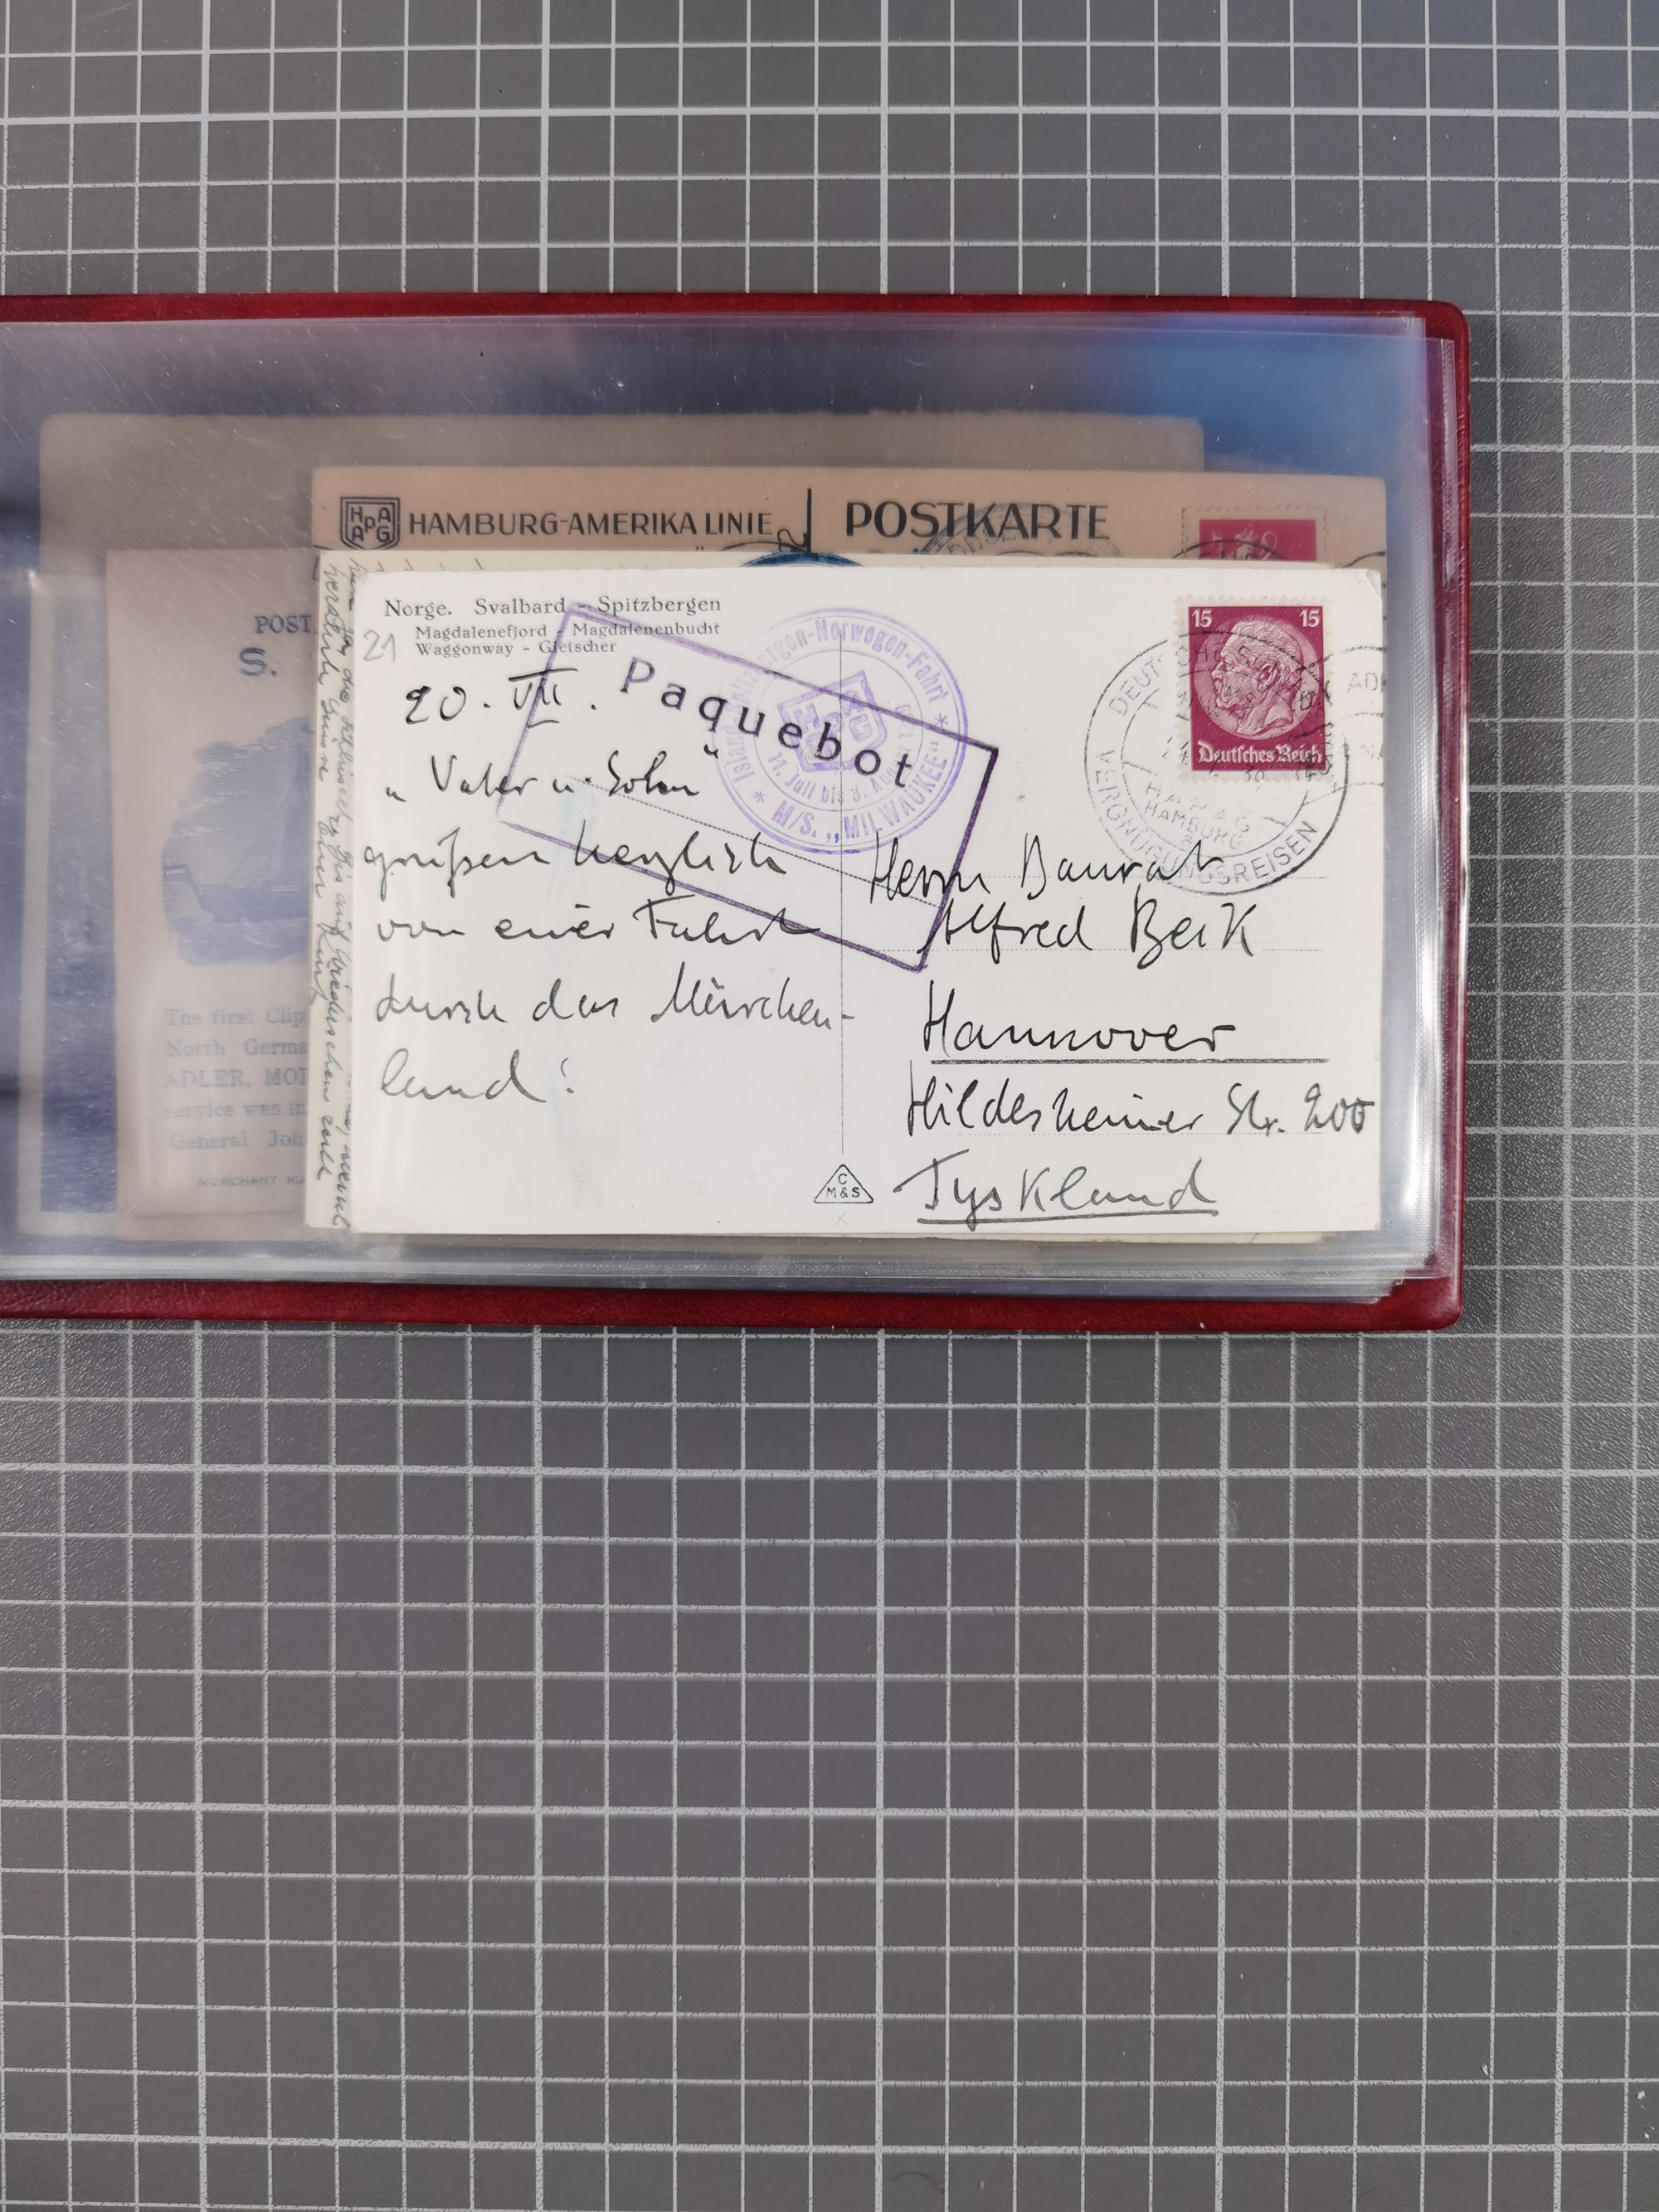 HAPAG HAMBURG-AMERIKA LINIE
POSTKARTE
POST
S.
The first Clip
North Germa
ADLER, MO
service was in
General Joh
MERCHANT MA
Norge. Svalbard - Spitzbergen
Magdalenefjord - Magdalenenbucht
Waggonway - Gletscher
21
20. VII.
„Vater u. Sohn“
grüßen herzlich
von einer Fahrt
durch das Märchen-
land!
Paquebot
Island-Spitzbergen-Norwegen-Fahrt
HAPAG
11. Juli bis 3.
* M/S. „MILWAUKEE“ *
15 15
Deutsches Reich
DEUTSCHE
HAPAG
HAMBURG
VERGNÜGUNGSREISEN
Herrn Baurat
Alfred Beck
Hannover
Hildesheimer Str. 200
Tyskland
C
M&S